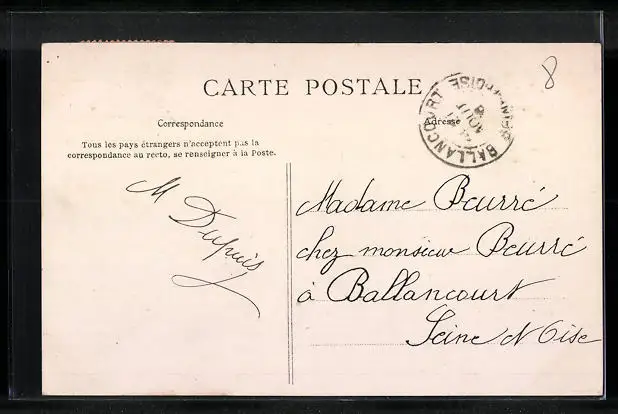 CARTE POSTALE
8
Correspondance
Adresse
Tous les pays étrangers n'acceptent pas la
correspondance au recto, se renseigner à la Poste.
BALLANCOURT
AOUT
M Dupuis
Madame Beurré
chez monsieur Beurré
à Ballancourt
Seine et Oise